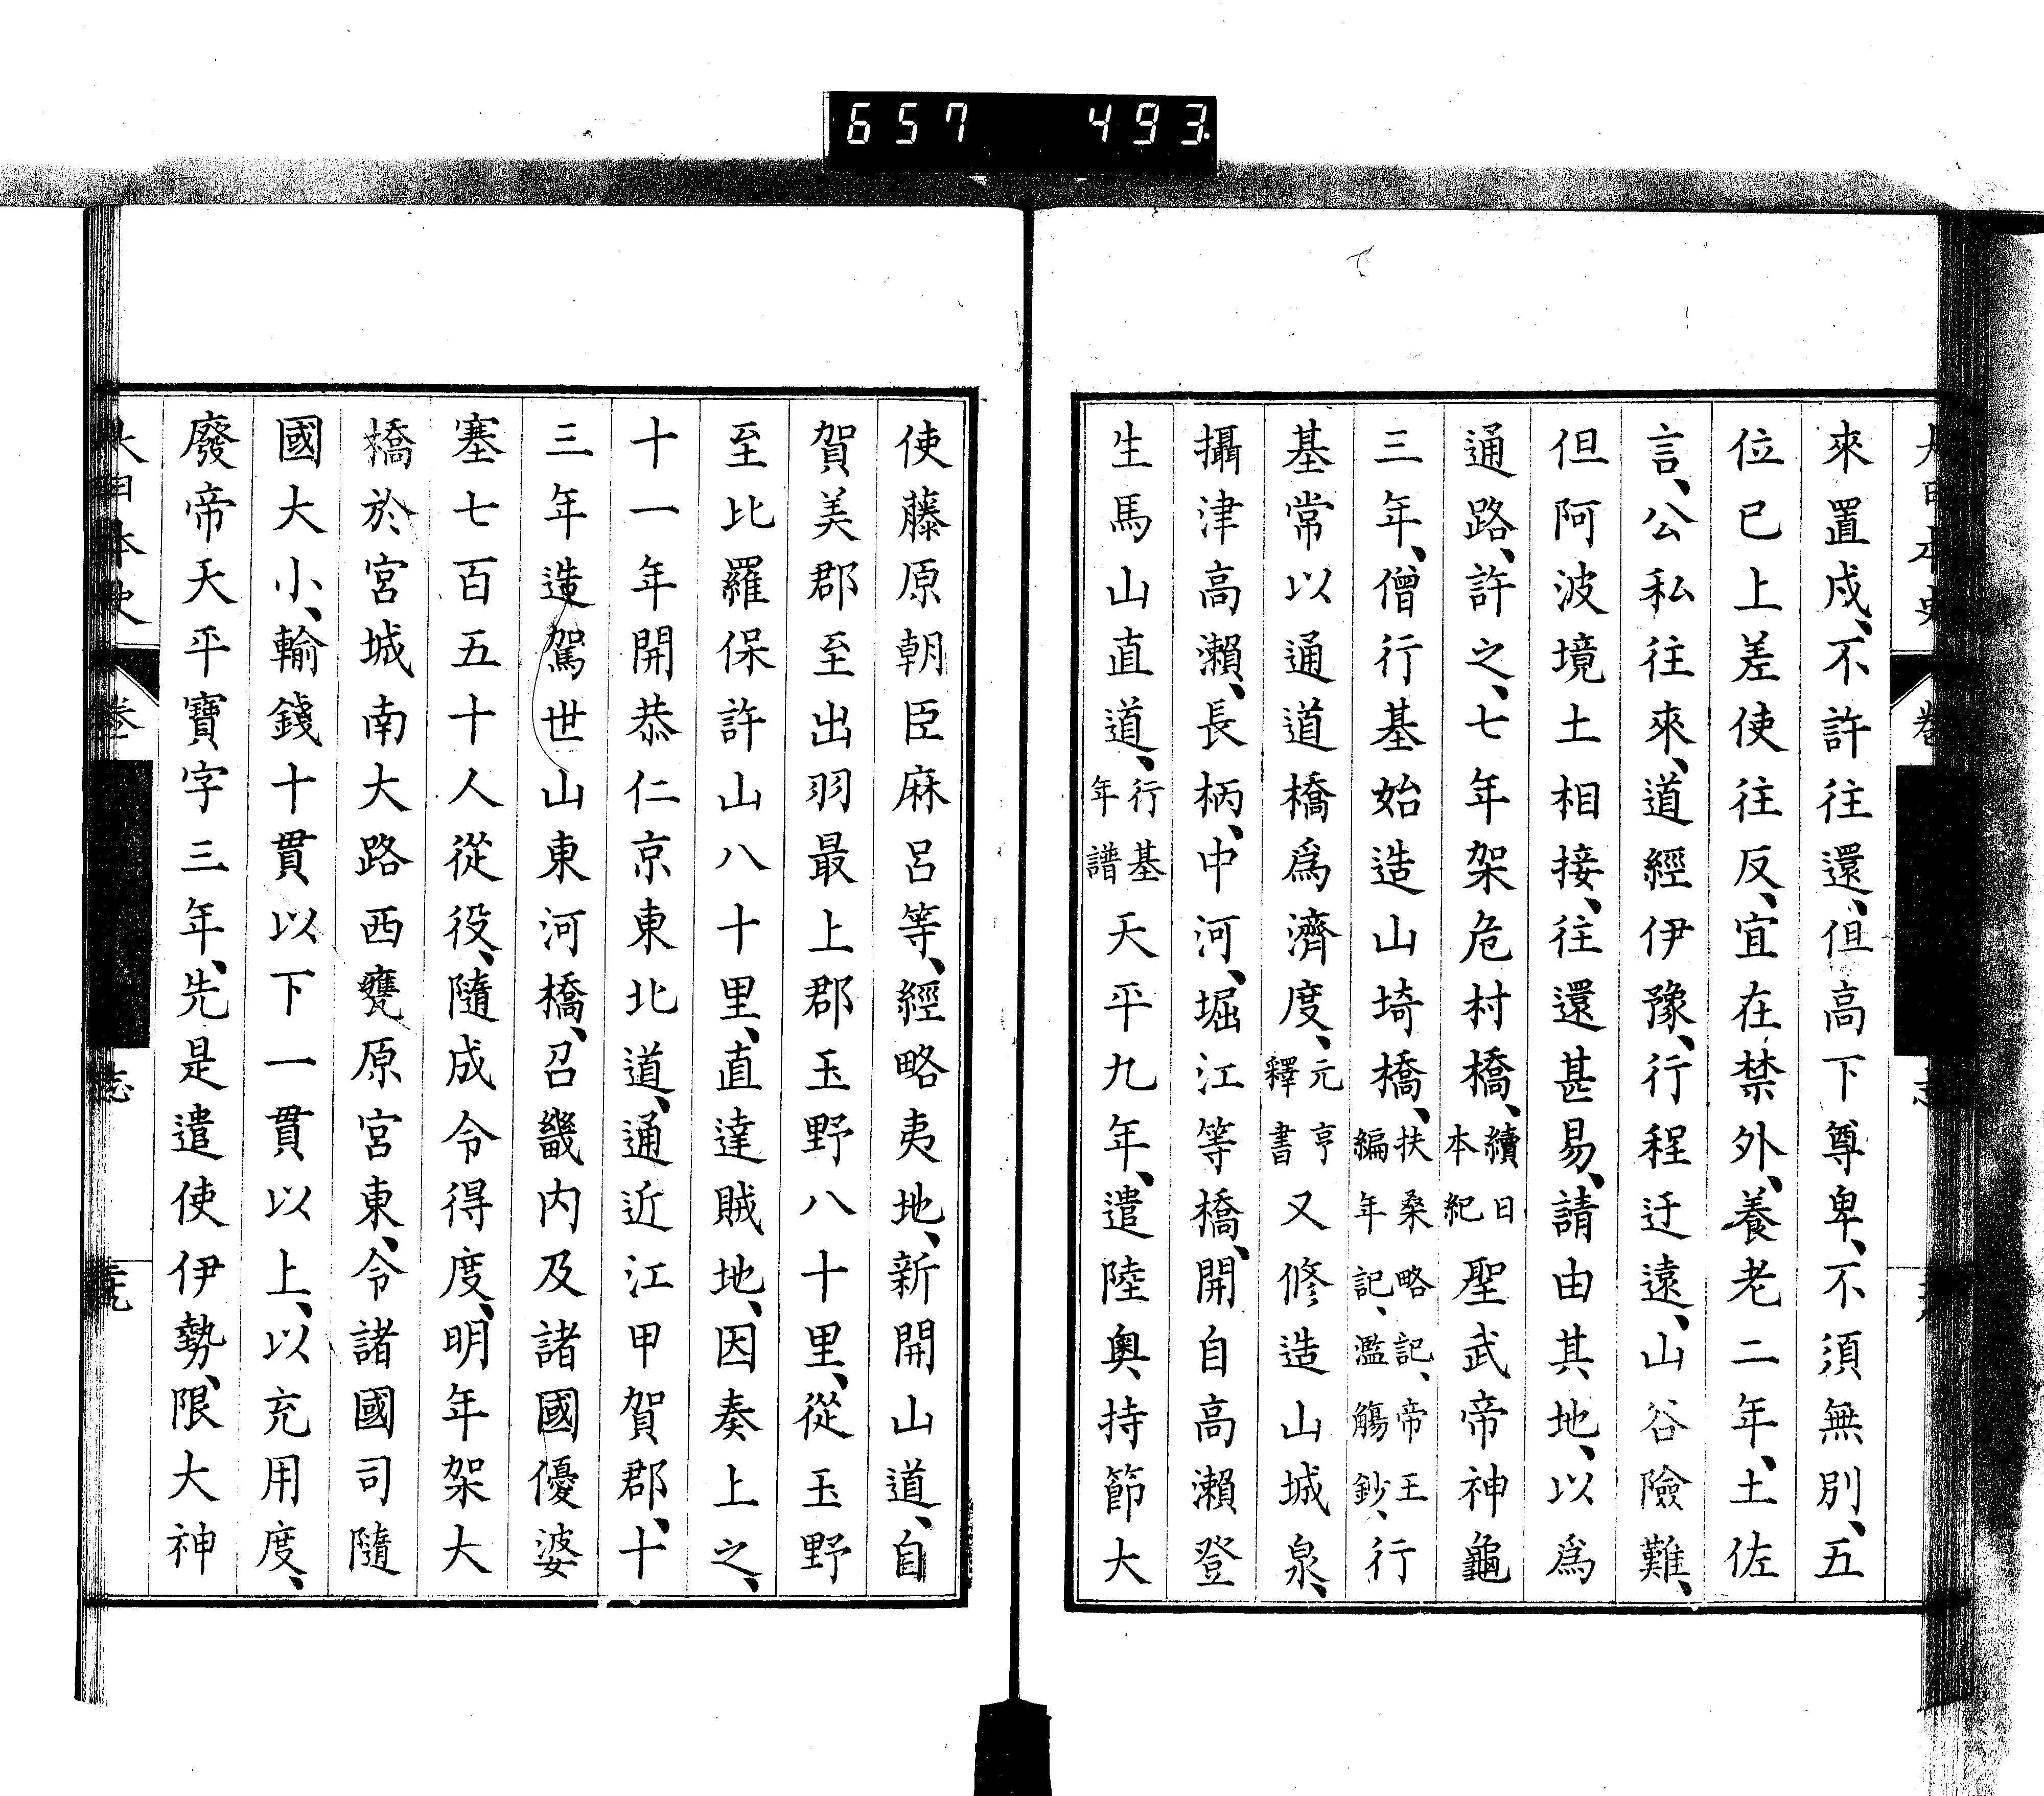 657 493
來置戍、不許往還、但高下尊卑、不須無別、五
位已上差使往反、宜在禁外、養老二年、土佐
言、公私往來、道經伊豫、行程迂遠、山谷險難、
但阿波境土相接、往還甚易、請由其地、以爲
通路、許之、七年架危村橋、續日本紀聖武帝神龜
三年、僧行基始造山埼橋、扶桑略記、帝王編年記、濫觴鈔、行
基常以通道橋爲濟度、元亨釋書又修造山城泉、
攝津高瀨、長柄、中河、堀江等橋、開自高瀨登
生馬山直道、行基年譜天平九年、遣陸奧持節大
使藤原朝臣麻呂等、經略夷地、新開山道、自
賀美郡至出羽最上郡玉野八十里、從玉野
至比羅保許山八十里、直達賊地、因奏上之、
十一年開恭仁京東北道、通近江甲賀郡、十
三年造駕世山東河橋、召畿内及諸國優婆
塞七百五十人從役、隨成令得度、明年架大
橋於宮城南大路西甕原宮東、令諸國司隨
國大小、輸錢十貫以下一貫以上、以充用度、
廢帝天平寶字三年、先是遣使伊勢、限大神
大日本史 卷 志